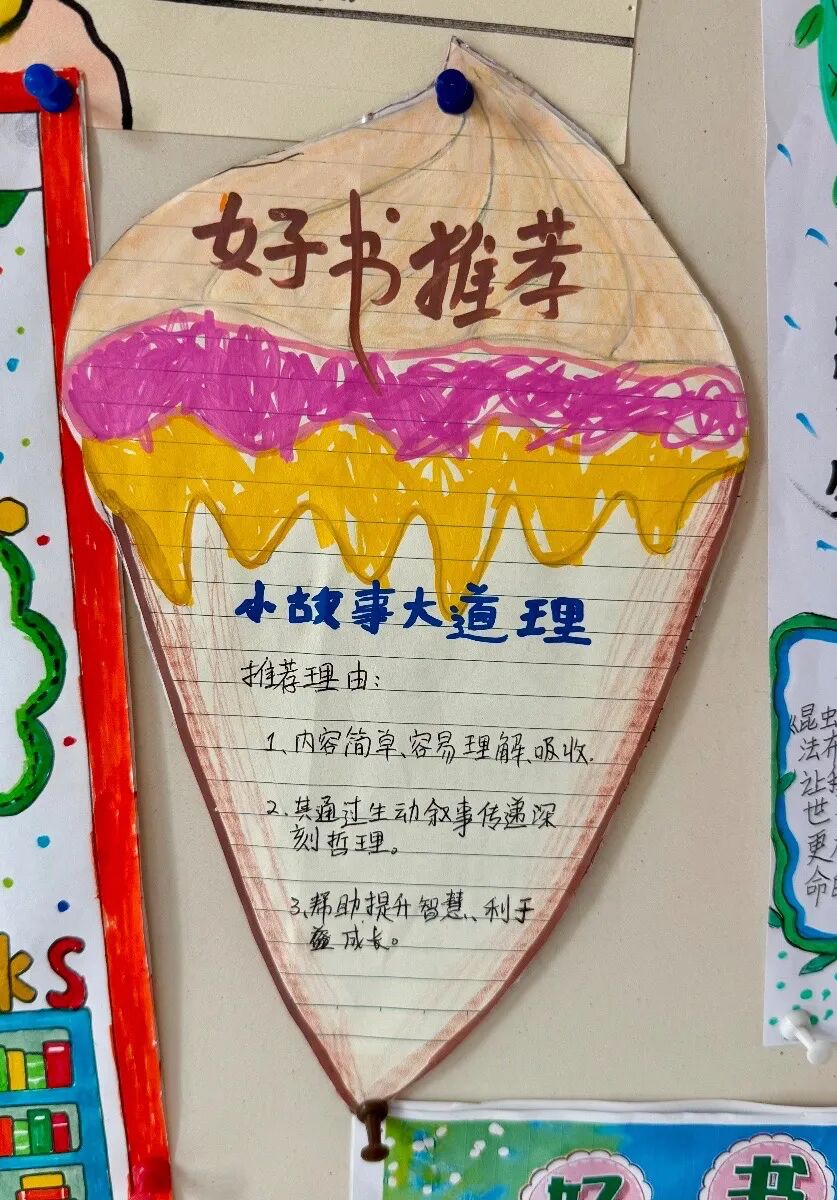 好书推荐
小故事大道理
推荐理由：
1、内容简单、容易理解、吸收.
2、其通过生动叙事传递深
刻哲理。
3、帮助提升智慧、利于
成长。
ks
《昆虫
法布
让我
世
更
命
好 书